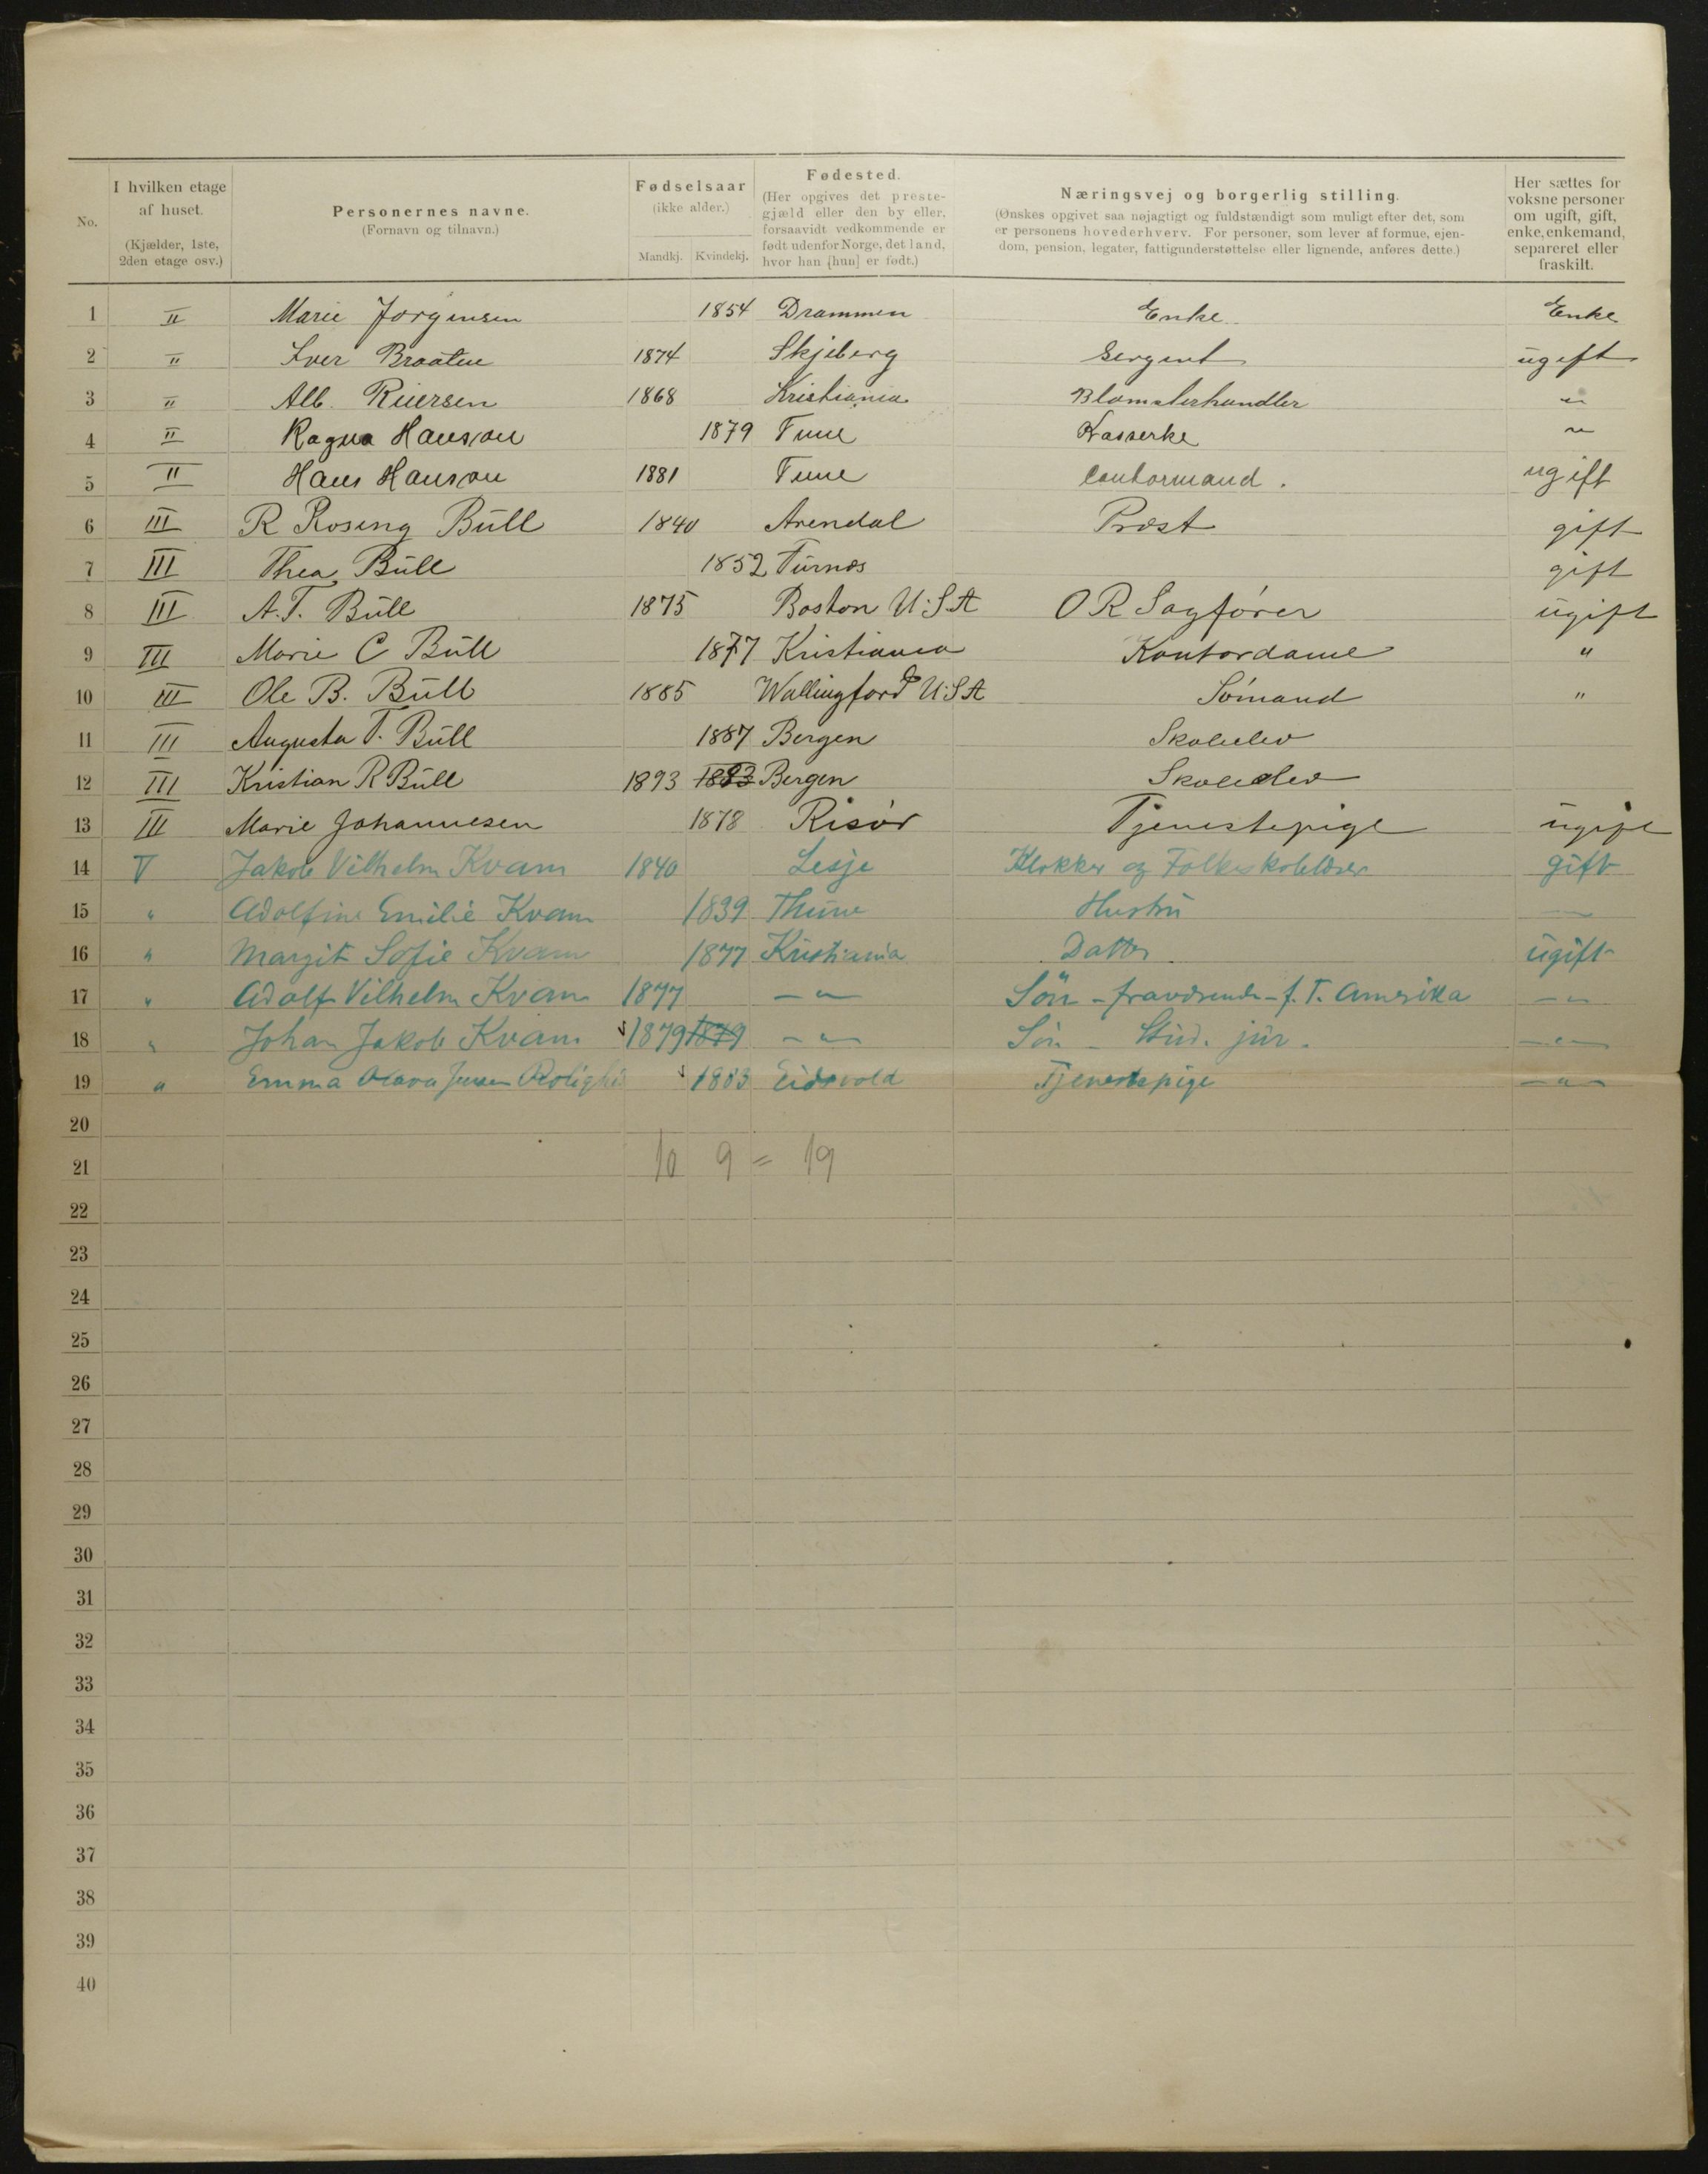 No. I hvilken etage af huset. (Kjælder, 1ste, 2den etage osv.) Personernes navne. (Fornavn og tilnavn.) Fødselsaar (ikke alder.) Mandkj. Kvindekj. Fødested. (Her opgives det prestegjæld eller den by eller, forsaavidt vedkommende er født udenfor Norge, det land, hvor han [hun] er født.) Næringsvej og borgerlig stilling. (Ønskes opgivet saa nøjagtigt og fuldstændigt som muligt efter det, som er personens hovederhverv. For personer, som lever af formue, ejendom, pension, legater, fattigunderstøttelse eller lignende, anføres dette.) Her sættes for voksne personer om ugift, gift, enke, enkemand, separeret eller fraskilt.
1 II Marie Jørgensen 1854 Drammen Enke Enke
2 II Iver Braaten 1874 Skjeberg Sergent ugift
3 II Alb. Riiersen 1868 Kristiania Blomsterhandler "
4 II Ragna Hansson 1879 Tune Kasserke "
5 II Hans Hansson 1881 Tune Contormand. ugift
6 III R Rosing Bull 1840 Arendal Præst gift
7 III Thea Bull 1852 Furnæs gift
8 III A. T. Bull 1875 Boston U.S.A O R Sagfører ugift
9 III Marie C Bull 1877 Kristiania Kontordame "
10 III Ole B. Bull 1885 Wallingford U.S.A Sömand "
11 III Augusta T. Bull 1887 Bergen Skoleelev
12 III Kristian R Bull 1893 1883 Bergen Skoleelev
13 III Marie Johannesen 1878 Risör Tjenestepige ugift
14 V Jakob Vilhelm Kvam 1840 Lesje Klokker og Folkeskolelærer gift
15 " Adolfine Emilie Kvam 1839 Thune Hustru —
16 " Margit Sofie Kvam 1877 Kristiania Datter ugift
17 " Adolf Vilhelm Kvam 1877 — " — Sön - fraværende - f. T. Amerika — " —
18 " Johan Jakob Kvam 1879 1879 — " — Sön - Stud. jur. — " —
19 " Emma Olava Jensen 1883 Eidsvold Tjenestepige — " —
20
21 10 9 = 19
22
23
24
25
26
27
28
29
30
31
32
33
34
35
36
37
38
39
40